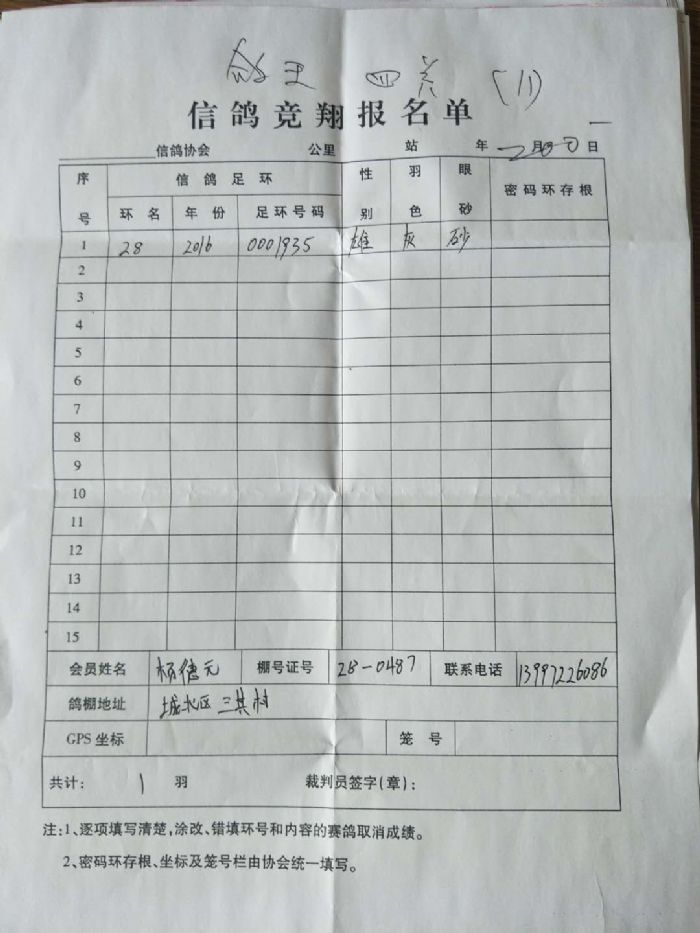 鸽王 四关 (11)
信鸽竞翔报名单
信鸽协会 公里 站 年 月 日
序号 信鸽足环 性别 羽色 眼砂 密码环存根
环名 年份 足环号码
1 28 2016 0001935 雄 灰 砂
2
3
4
5
6
7
8
9
10
11
12
13
14
15
会员姓名 杨德元 棚号证号 28-0487 联系电话 13997226086
鸽棚地址 城北区 三其村
GPS坐标 笼号
共计: 1 羽 裁判员签字(章):
注:1、逐项填写清楚,涂改、错填环号和内容的赛鸽取消成绩。
2、密码环存根、坐标及笼号栏由协会统一填写。